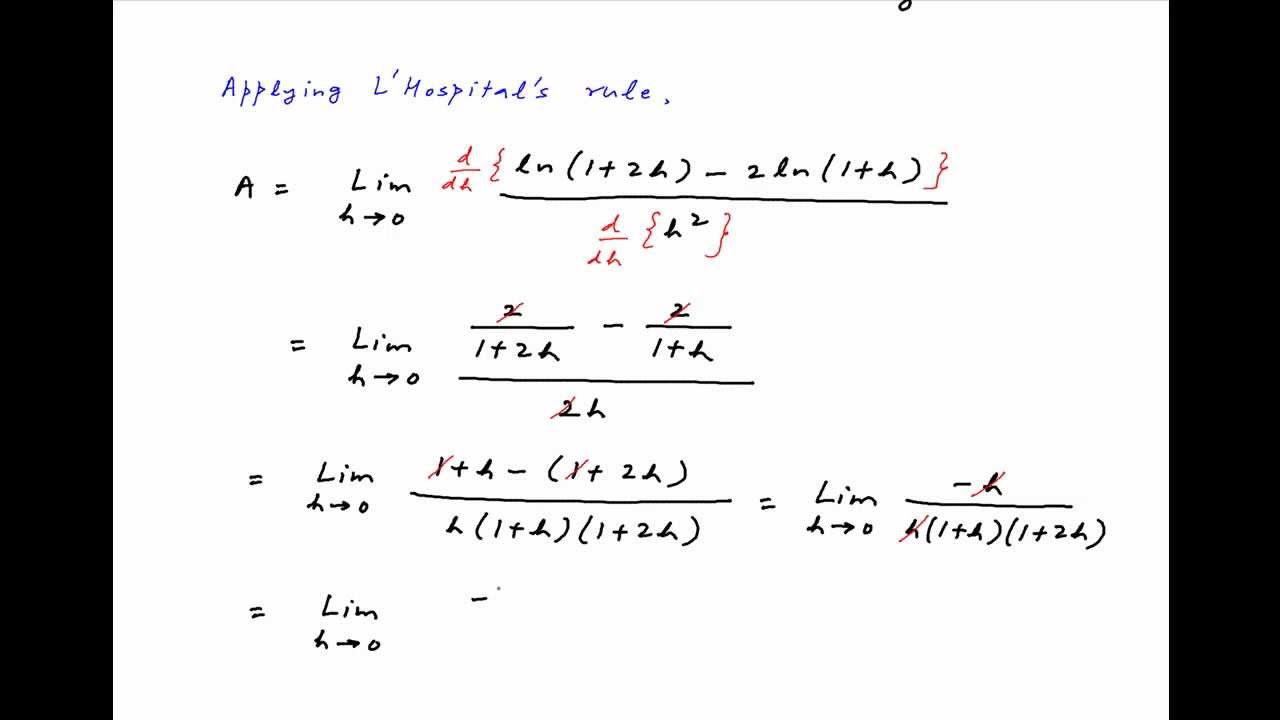 Applying L'Hospital's rule,
A = Lim h→0 d/dh {ln(1+2h) − 2ln(1+h)} / d/dh {h²}
= Lim h→0 (2/(1+2h) − 2/(1+h)) / 2h
= Lim h→0 1+h−(1+2h) / h(1+h)(1+2h) = Lim h→0 −h / h(1+h)(1+2h)
= Lim h→0 −